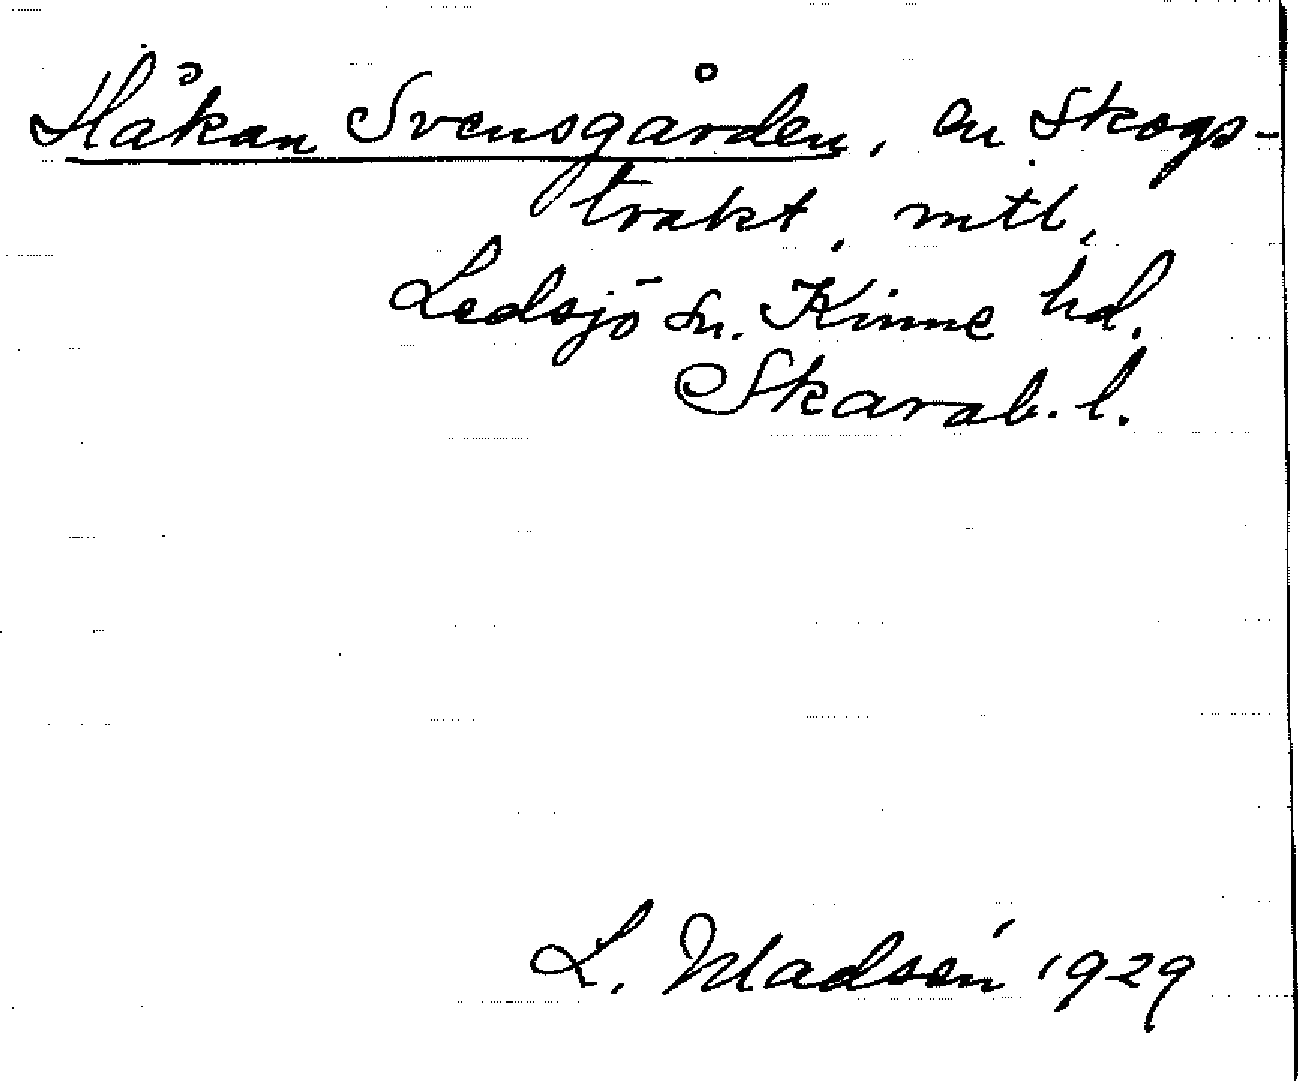 Håkan Svensgården, en Skogs-
trakt, mtl,
Ledsjö sn. Kinne hd.
Skarab. l.
L. Madsén 1929